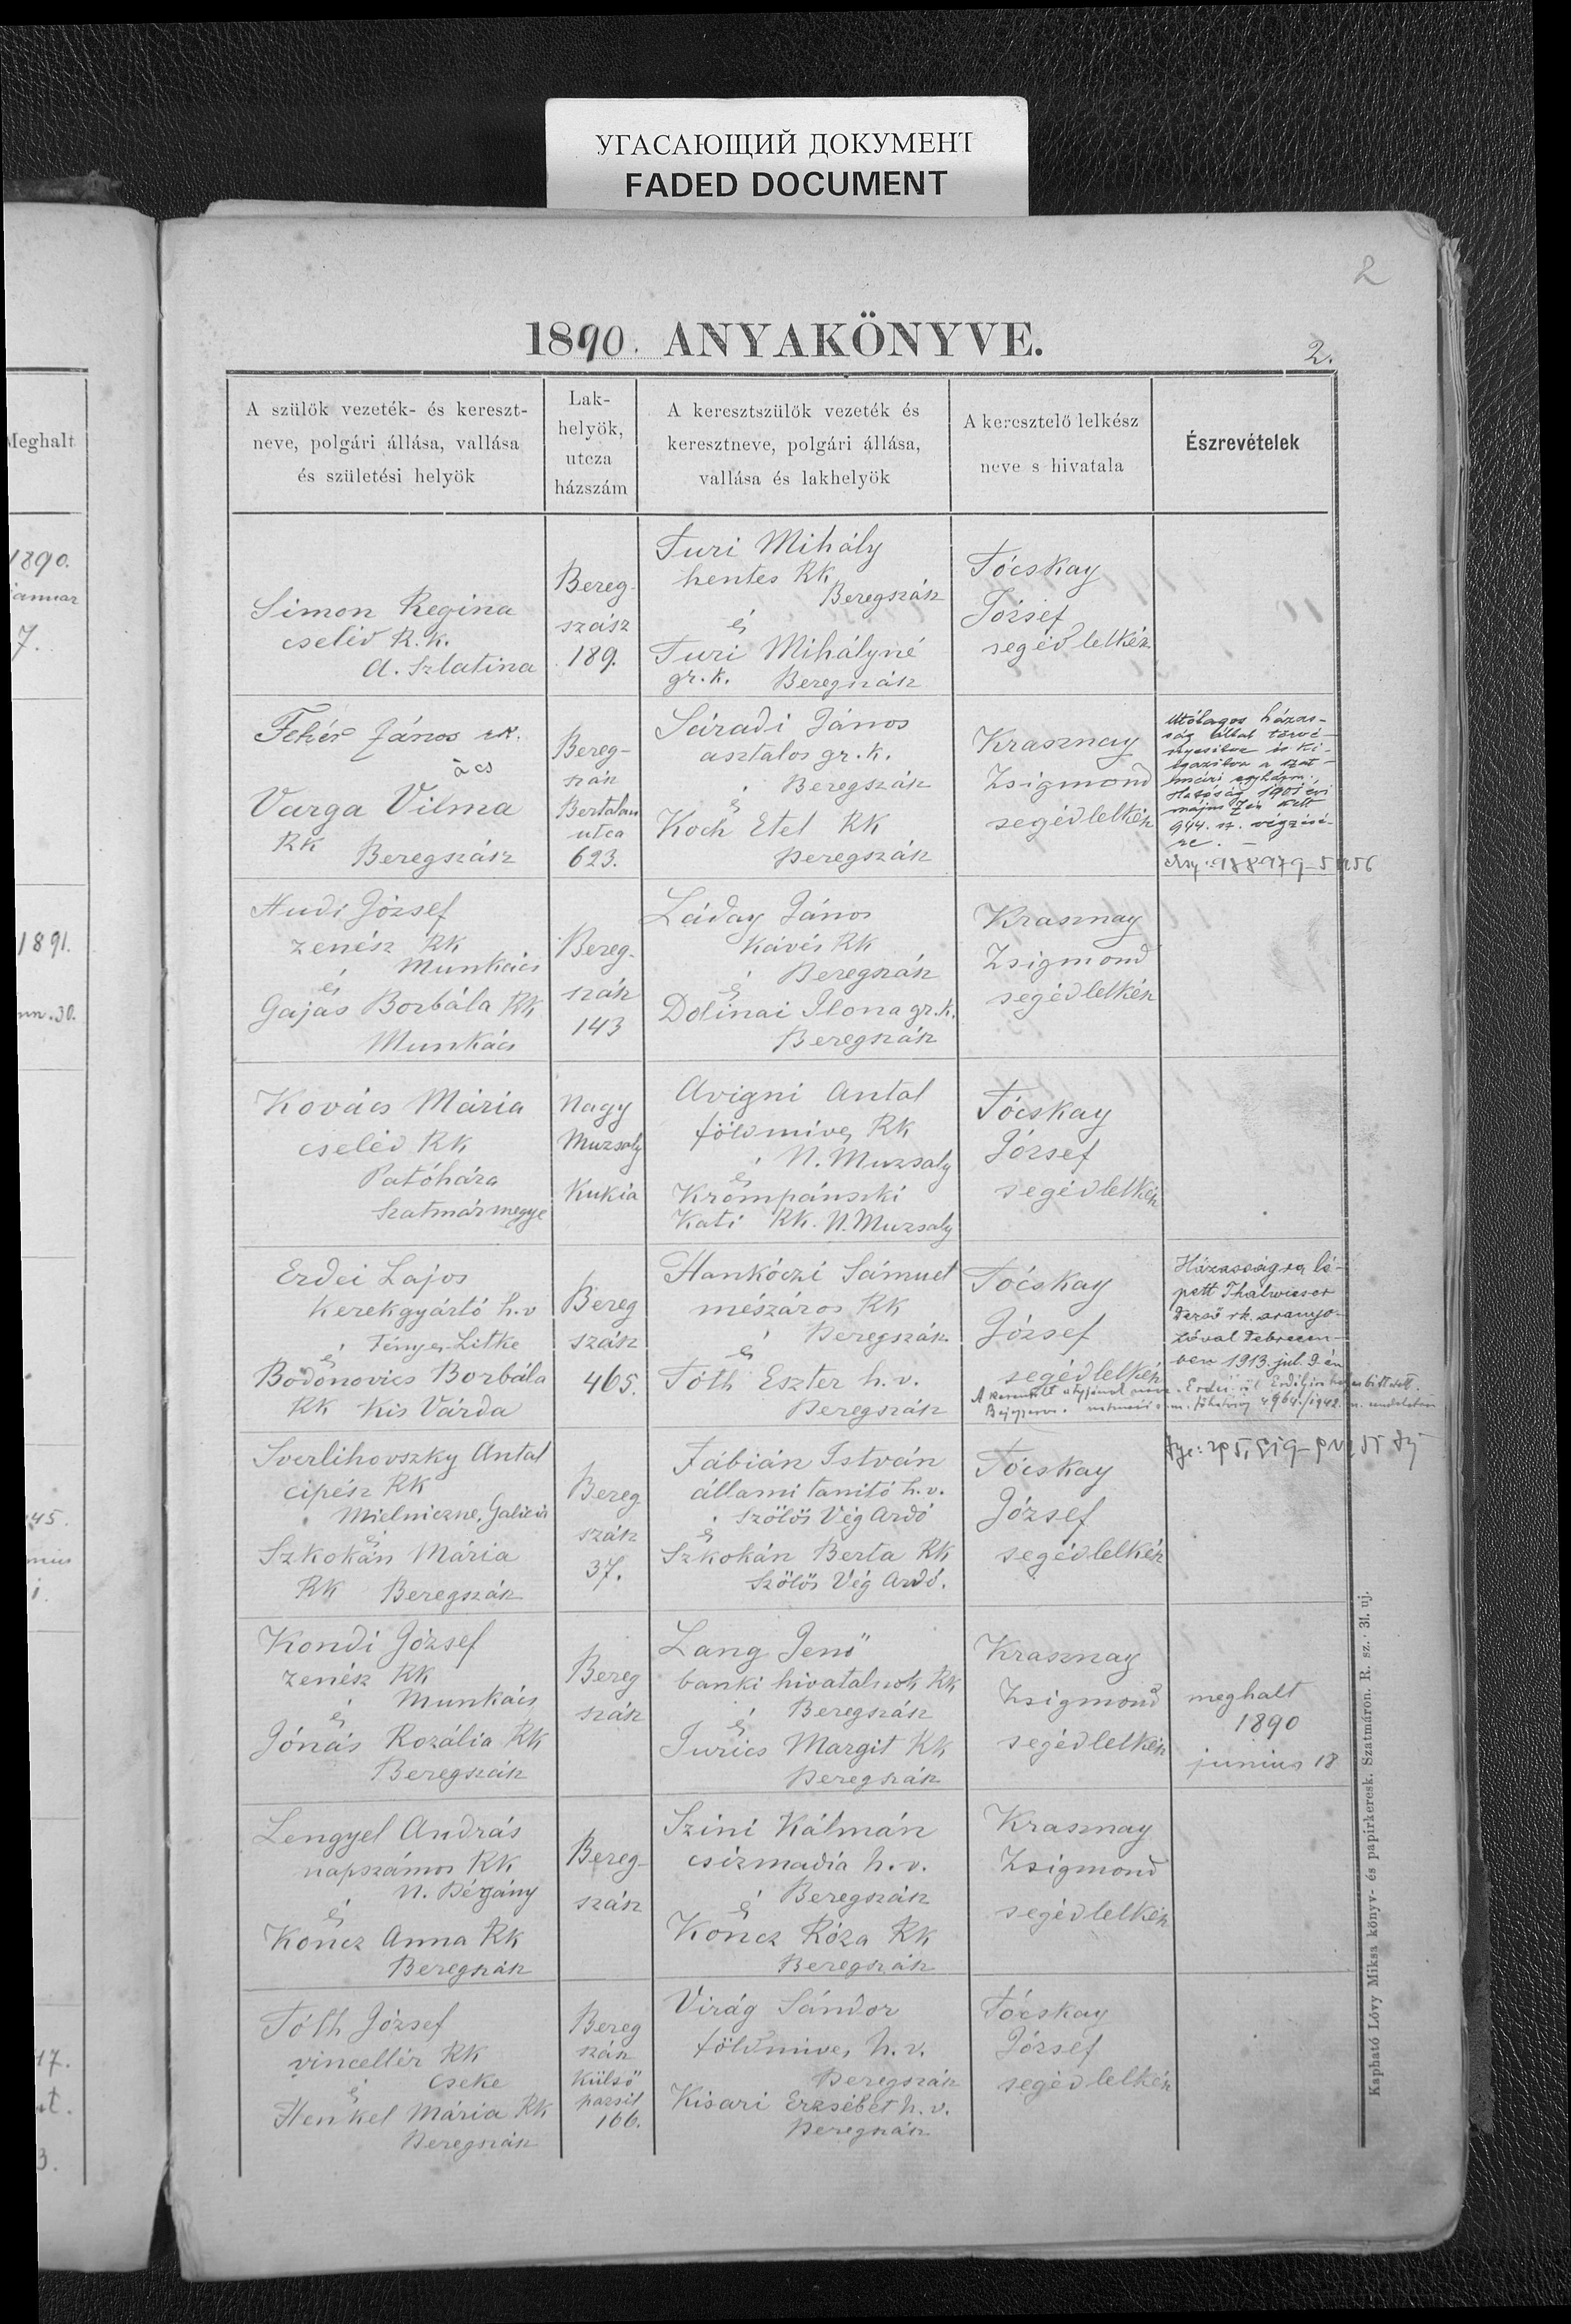 УГАСАЮЩИЙ ДОКУМЕНТ
FADED DOCUMENT
2
1890. ANYAKÖNYVE.
2.
Meghalt
1890.
januar
7.
1891.
30.
45.
17.
3.
A szülök vezeték- és kereszt-
neve, polgári állása, vallása
és születési helyök
Lak-
helyök,
utcza
házszám
A keresztszülök vezeték és
keresztneve, polgári állása,
vallása és lakhelyök
A keresztelő lelkész
neve s hivatala
Észrevételek
Simon Regina
cseléd R.k.
A. Szlatina
Bereg-
szász
189.
Turi Mihály
hentes RK
Beregszász
és
Turi Mihályné
gr. k. Beregszász
Tócskay
József
segédlelkész
Fehér János rk.
ács
Varga Vilma
RK
Beregszász
Bereg-
szász
Bertalan
utca
623.
Sáradi János
asztalos gr. k.
Beregszász
és
Koch Etel RK
Beregszász
Krasznay
Zsigmond
segédlelkész
Utólagos házas-
ság által törvé-
nyesitve és ki-
igazitva a szat-
mári egyházm.
Hatóság 1901 évi
május 7én kelt
944. sz. végzésé-
re. –
Hudi József
zenész RK
Munkács
és
Gajás Borbála RK
Munkács
Bereg-
szász
143
Láday János
kávés RK
Beregszász
és
Dolinai Ilona gr. k.
Beregszász
Krasznay
Zsigmond
segédlelkész
Kovács Mária
cseléd RK
Patóháza
Szatmármegye
Nagy
Muzsaly
Kukia
Avigni Antal
földmives RK
N. Muzsaly
és
Krompánszki
Kati RK. N. Muzsaly
Tócskay
József
segédlelkész
Erdei Lajos
kerekgyártó h. v
Fényes Litke
és
Bodonovics Borbála
RK Kis Várda
Bereg
szász
465.
Hankóczi Sámuel
mészáros RK
Beregszász
és
Tóth Eszter h. v.
Beregszász
Tócskay
József
segédlelkész
Házasságra lé-
pett Thalwieser
Dezső rk. aranyo-
zóval Debrecen-
ben 1913. jul. 9 én
Sverlihovszky Antal
cipész RK
Mielniczne, Galicia
és
Szkokán Mária
RK Beregszász
Bereg
szász
37.
Fábián István
állami tanitó h. v.
Szőlős Vég Ardó
és
Szkokán Berta RK
Szőlős Vég Ardó.
Tócskay
József
segédlelkész
Kondi József
zenész RK
Munkács
és
Jónás Rozália RK
Beregszász
Bereg
szász
Lang Jenő
banki hivatalnok RK
Beregszász
és
Jurics Margit RK
Beregszász
Krasznay
Zsigmond
segédlelkész
meghalt
1890
junius 18
Lengyel András
napszámos RK
N. Bégány
és
Koncz Anna RK
Beregszász
Bereg-
szász
Szini Kálmán
csizmadia h. v.
Beregszász
és
Koncz Róza RK
Beregszász
Krasznay
Zsigmond
segédlelkész
Tóth József
vincellér RK
Cseke
és
Henkel Mária RK
Beregszász
Bereg
szász
Külső
166.
Virág Sándor
földmives h. v.
Beregszász
Kisari Erzsébet h. v.
Beregszász
Tócskay
József
segédlelkész
Kapható Lóvy Miksa könyv- és papirkeresk. Szatmáron. R. sz. 31. uj.